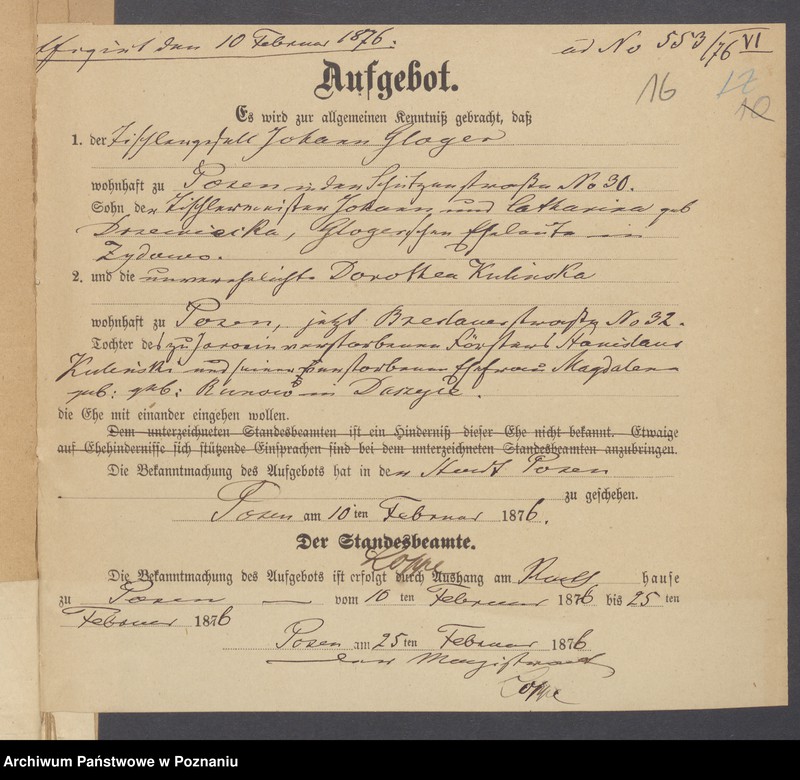 affigirt den 10 Februar 1876.
ad No 553/76 VI
16 17
10
Aufgebot.
Es wird zur allgemeinen Kenntniß gebracht, daß
1. der Tischlergesell Johann Gloger
wohnhaft zu Posen in der Schützenstraße No 30.
Sohn der Tischlermeister Johann und Catharina geb
Drzewiecka, Glogerschen Eheleute in
Zydowo.
2. und die unverehelichte Dorothea Kulinska
wohnhaft zu Posen, jetzt Breslauerstraße No 32.
Tochter des zu Jarocin verstorbenen Försters Stanislaus
Kulinski und seiner verstorbenen Ehefrau Magdalena
geb: geb: in
die Ehe mit einander eingehen wollen.
Dem unterzeichneten Standesbeamten ist ein Hinderniß dieser Ehe nicht bekannt. Etwaige
auf Ehehindernisse sich stützende Einsprachen sind bei dem unterzeichneten Standesbeamten anzubringen.
Die Bekanntmachung des Aufgebots hat in der Stadt Posen
zu geschehen.
Posen am 10 ten Februar 1876.
Der Standesbeamte.
Die Bekanntmachung des Aufgebots ist erfolgt durch Aushang am Rath hause
zu Posen — vom 10 ten Februar 1876 bis 25 ten
Februar 1876
Posen am 25 ten Februar 1876
Der Magistrat
Archiwum Państwowe w Poznaniu